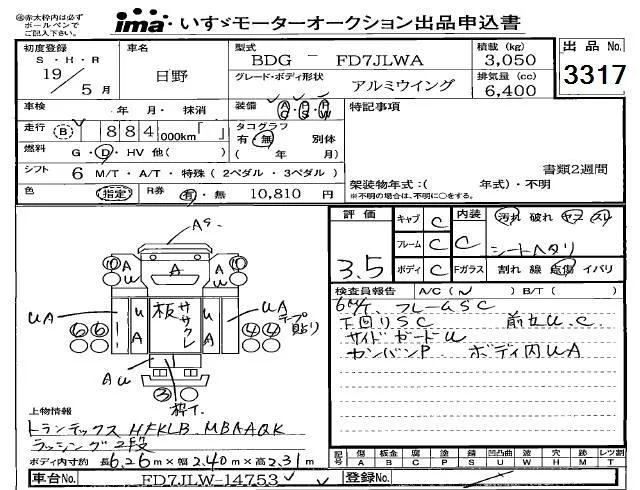 ㊟赤太枠内は必ず
ボールペンで
ご記入下さい。
ima いすゞモーターオークション出品申込書
初度登録 車名 型式 積載 (kg) 出品No.
S・H・R 日野 BDG － FD7JLWA 3,050 3317
19/5月 グレード・ボディ形状 アルミウイング 排気量 (cc) 6,400
車検 年 月・抹消 装備 AC PS PW 特記事項
走行 B 884,000km「 」 タコグラフ 有・無 別体
燃料 G・D・HV 他( ) ( 年 月) 書類2週間
シフト 6 M/T・A/T・特殊 (2ペダル・3ペダル) 架装物年式:( 年式)・不明
色 指定 R券 有・無 10,810 円 ※不明の場合は、不明に○をする。
評価 キャブ C 内装 汚れ 破れ ヤケ スリ
3.5 フレーム C C シートヘタリ
ボディ C Fガラス 割れ 線 点傷 イバリ
検査員報告 A/C( ) B/T( )
6M/T フレームSC
下回りSC 前セU.C
サイドガードU
センバンP ボディ内UA
A
A A A
UA U A 板ササクレ U A UA テープ貼り
⑥⑥ ④④
AU
③ 枠イ.
上物情報
トランテックス HFKLB MBAAQK
ラッシング2段
ボディ内寸約 長6.26m×幅2.40m×高2.31m
記号 傷 板金 腐 塗 錆 凹凸曲 波 穴 跡 レツ割
A B C P S U W H M T
車台No. FD7JLW-14753 登録No.